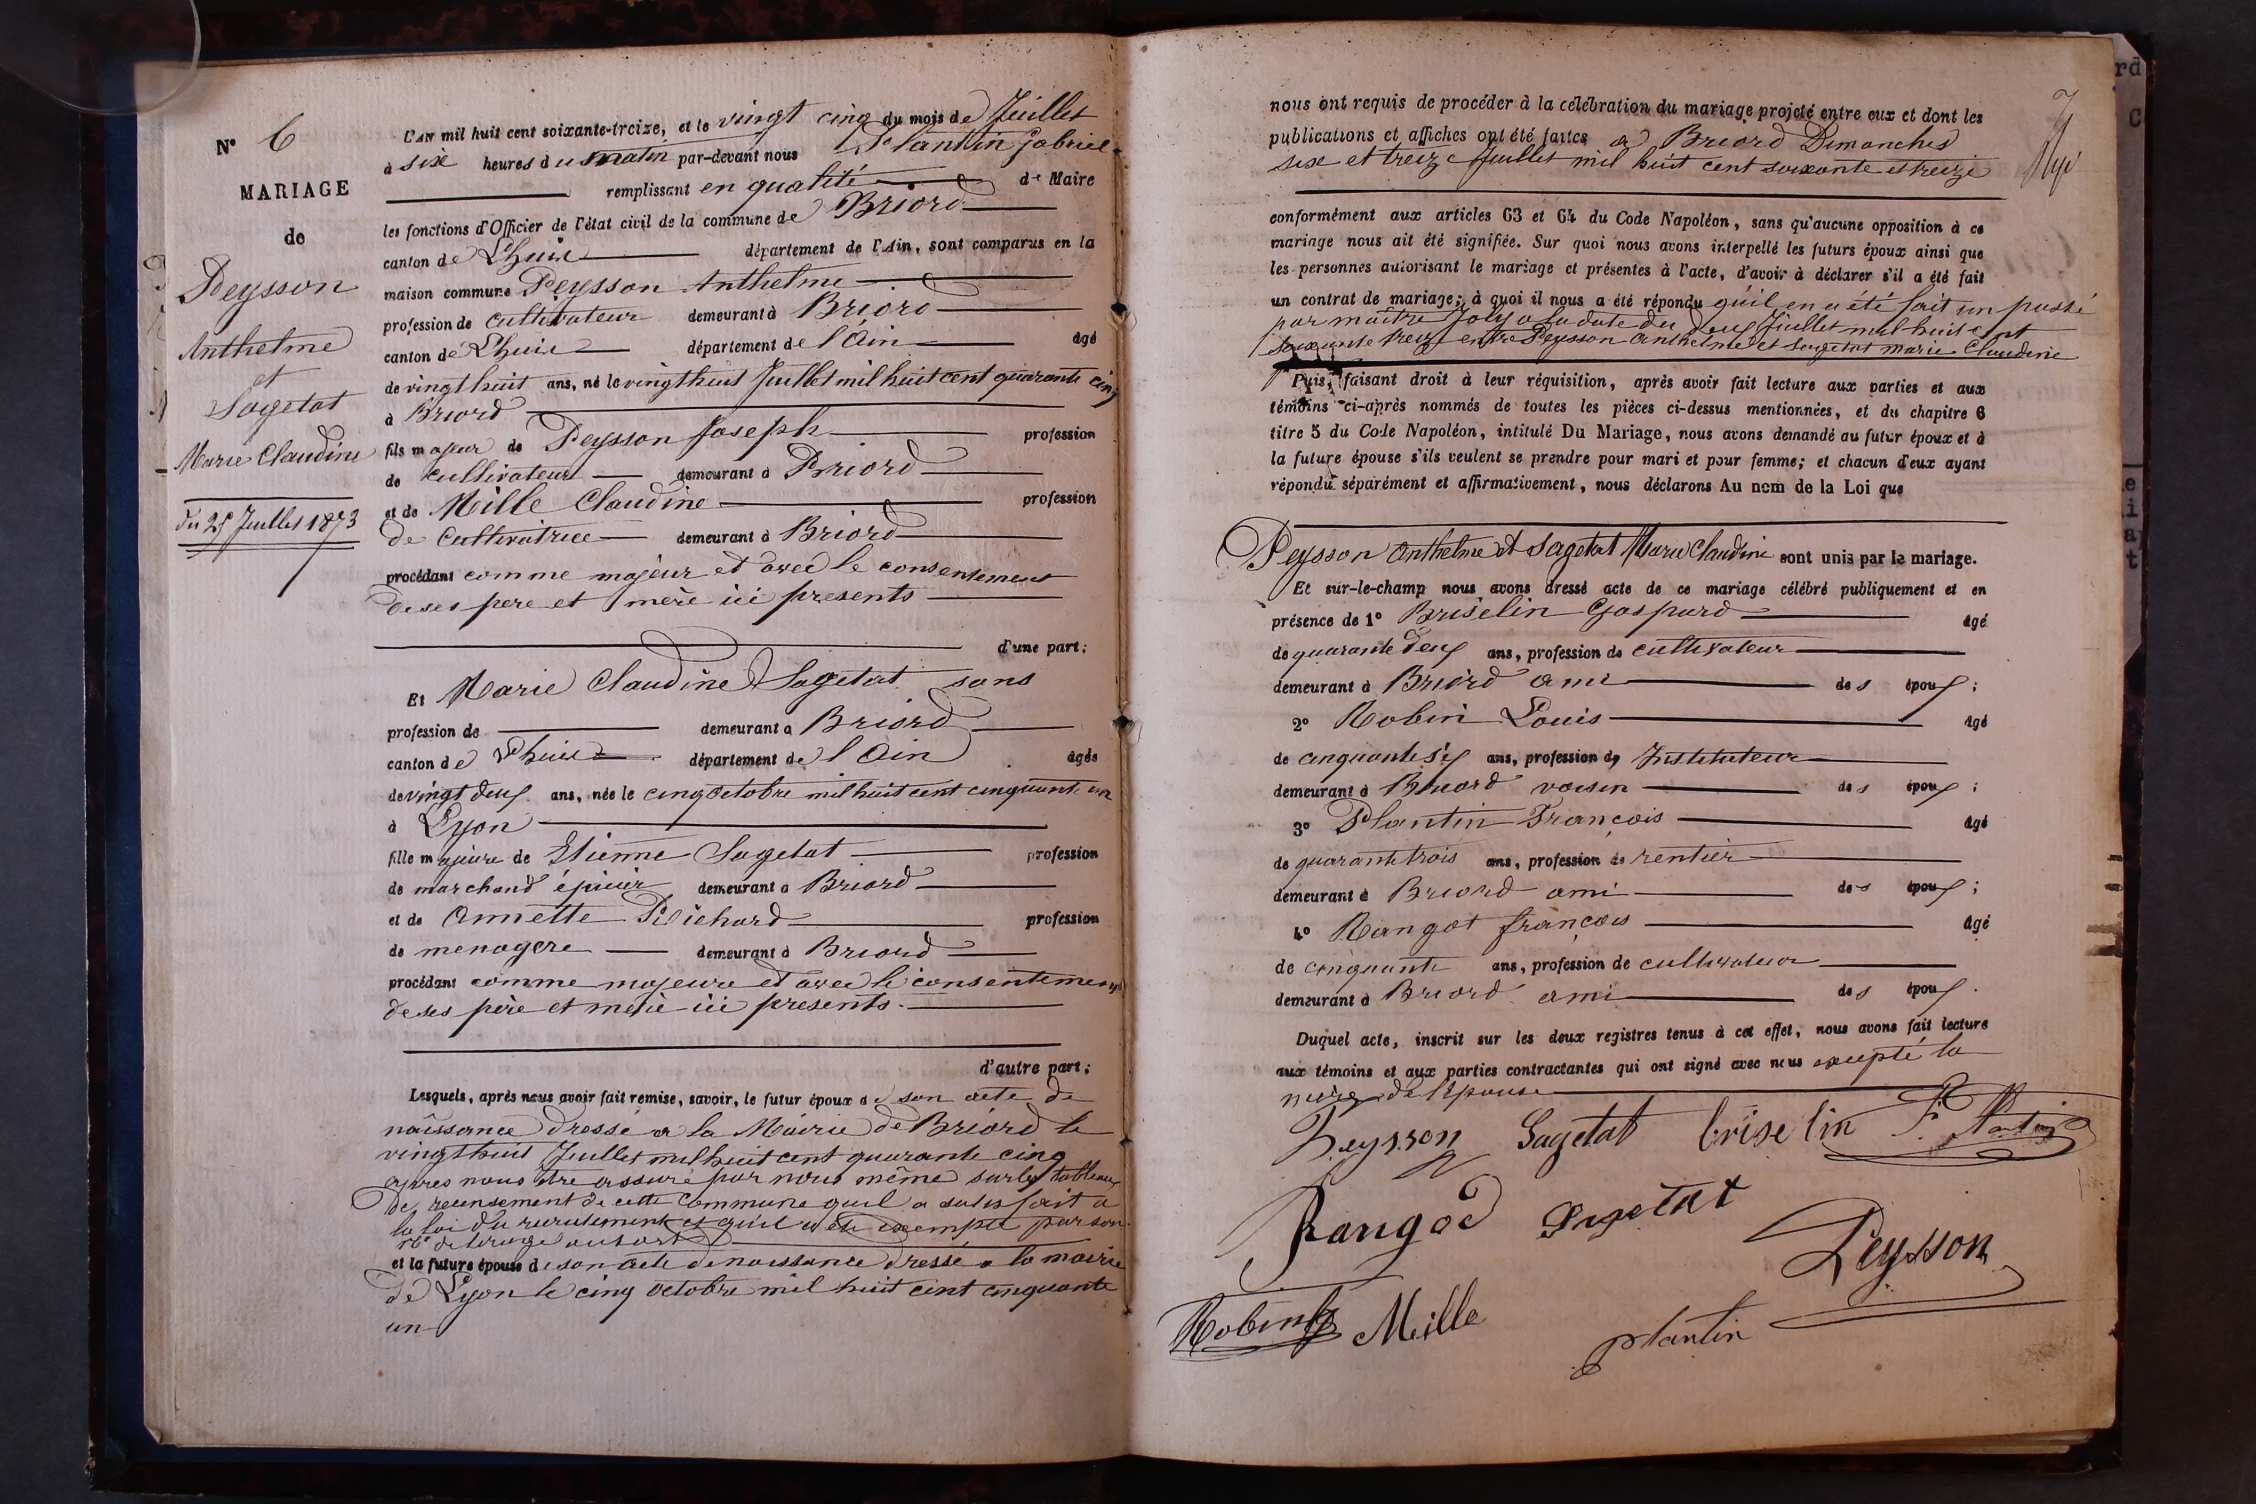 N° 6
MARIAGE
de
Peysson
Anthelme
et
Sagetat
Marie Claudine
du 25 Juillet 1873
L'AN mil huit cent soixante-treize, et le vingt cinq du mois de Juillet
à six heures du matin par-devant nous Plantin Gabriel
remplissant en qualité de Maire
les fonctions d'Officier de l'état civil de la commune de Briord
canton de Lhuis département de l'Ain, sont comparus en la
maison commune Peysson Anthelme
profession de cultivateur demeurant à Briord
canton de Lhuis département de l'Ain âgé
de vingt huit ans, né le vingt huit Juillet mil huit cent quarante cinq
à Briord
fils majeur de Peysson Joseph profession
de cultivateur demeurant à Briord
et de Mille Claudine profession
de cultivatrice demeurant à Briord
procédant comme majeur et avec le consentement
de ses pere et mère ici presents
d'une part;
Et Marie Claudine Sagetat sans
profession de demeurant à Briord
canton de Lhuis département de l'Ain âgée
de vingt deux ans, née le cinq Octobre mil huit cent cinquante un
à Lyon
fille majeure de Etienne Sagetat profession
de marchand épicier demeurant à Briord
et de Annette Richard profession
de menagere demeurant à Briord
procédant comme majeure et avec le consentement
de ses père et mère ici presents.
d'autre part;
Lesquels, après nous avoir fait remise, savoir, le futur époux de son acte de
naissance dressé a la Mairie de Briord le
vingt huit Juillet mil huit cent quarante cinq
apres nous être assuré par nous même sur les tableaux
de recensement de cette commune quil a satisfait a
la loi du recrutement et qu'il a été exempté par son
n° de tirage au sort
et la future épouse de son acte de naissance dressé a la mairie
de Lyon le cinq octobre mil huit cent cinquante
un
7
nous ont requis de procéder à la célébration du mariage projeté entre eux et dont les
publications et affiches ont été faites a Briord Dimanches
six et treize Juillet mil huit cent soixante et treize
conformément aux articles 63 et 64 du Code Napoléon, sans qu'aucune opposition à ce
mariage nous ait été signifiée. Sur quoi nous avons interpellé les futurs époux ainsi que
les personnes autorisant le mariage et présentes à l'acte, d'avoir à déclarer s'il a été fait
un contrat de mariage; à quoi il nous a été répondu qu'il en a été fait un passé
par maître Joly a la date du deux Juillet mil huit cent
soixante treize entre Peysson anthelme et Sagetat marie Claudine
Puis, faisant droit à leur réquisition, après avoir fait lecture aux parties et aux
témoins ci-après nommés de toutes les pièces ci-dessus mentionnées, et du chapitre 6
titre 5 du Code Napoléon, intitulé Du Mariage, nous avons demandé au futur époux et à
la future épouse s'ils veulent se prendre pour mari et pour femme; et chacun d'eux ayant
répondu séparément et affirmativement, nous déclarons Au nom de la Loi que
Peysson Anthelme et Sagetat Marie Claudine sont unis par le mariage.
Et sur-le-champ nous avons dressé acte de ce mariage célébré publiquement et en
présence de 1° Briselin Gaspard âgé
de quarante deux ans, profession de cultivateur
demeurant à Briord ami des époux;
2° Robin Louis âgé
de cinquante six ans, profession de Instituteur
demeurant à Briord voisin des époux;
3° Plantin François âgé
de quarante trois ans, profession de rentier
demeurant à Briord ami des époux;
4° Rangot françois âgé
de cinquante ans, profession de cultivateur
demeurant à Briord ami des époux.
Duquel acte, inscrit sur les deux registres tenus à cet effet, nous avons fait lecture
aux témoins et aux parties contractantes qui ont signé avec nous excepté la
mère de l'épouse
Peysson Sagetat briselin F. Plantin
Rangod Sagetat
Peysson
Robin Mille
plantin